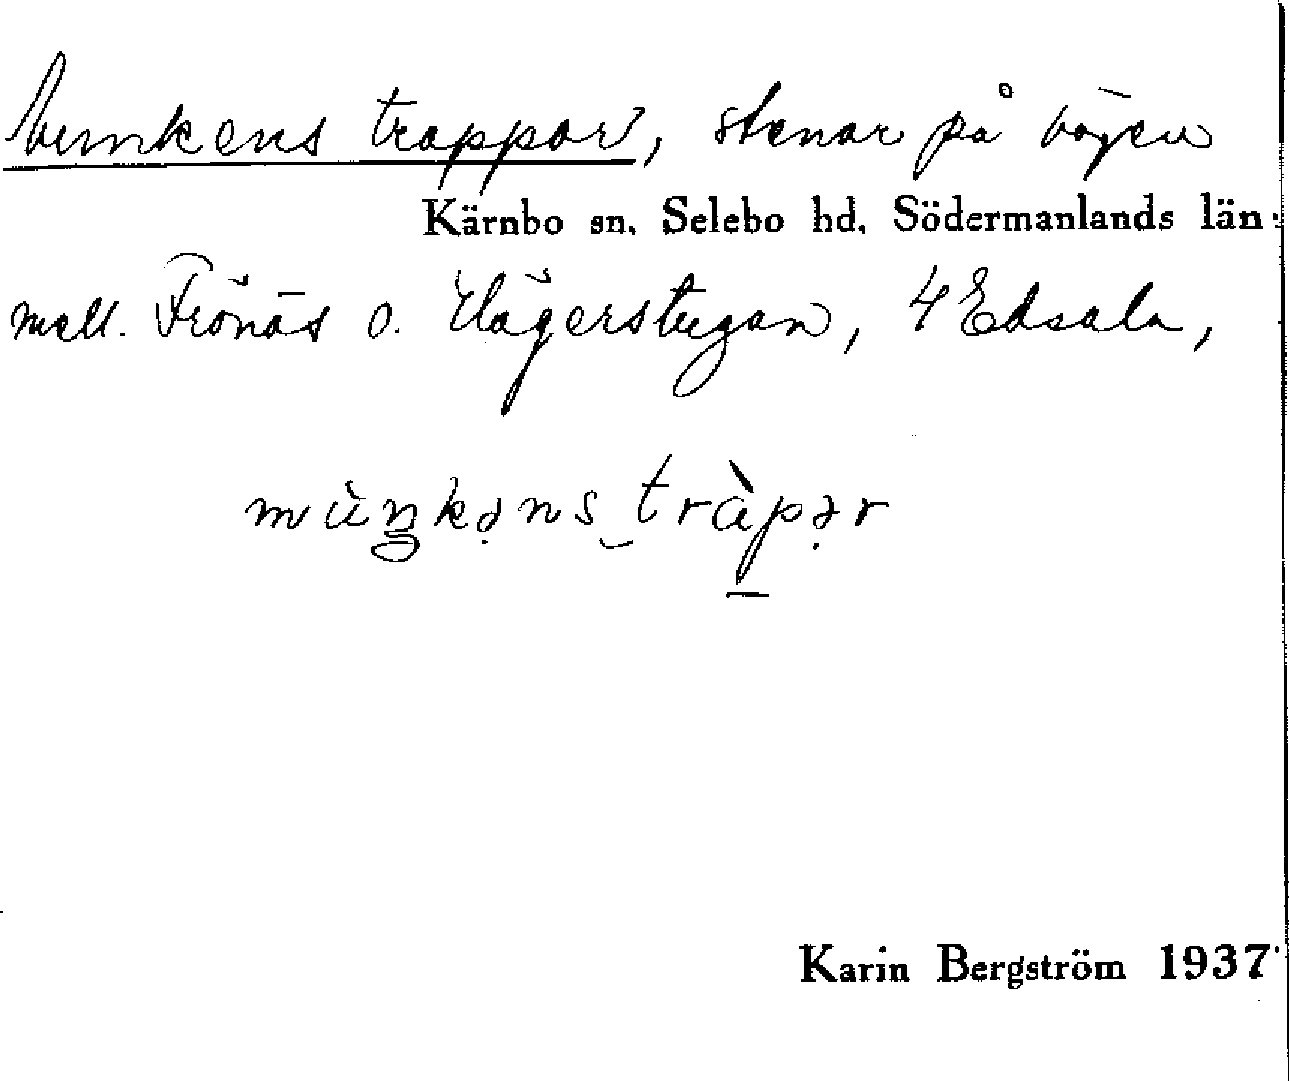 Munkens trappor, stenar på vägen
Kärnbo sn. Selebo hd. Södermanlands län:
mell. Frönäs o. Hägerstugan, 4 Edsala,
mùŋkəns‿tràpər
Karin Bergström 1937